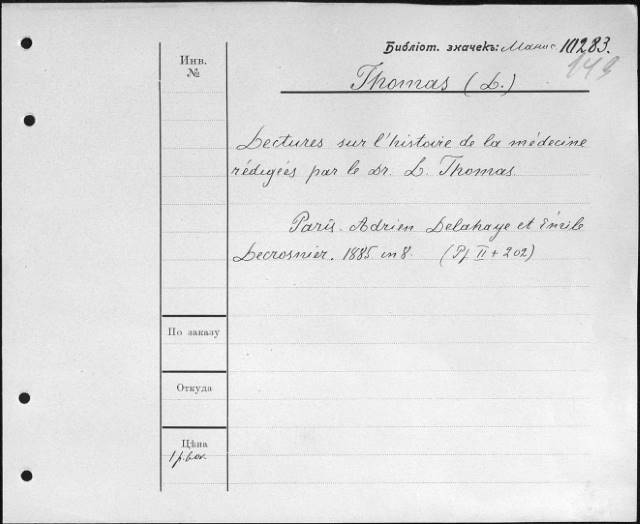 Библіот. значекъ: Манис. 10283.
149
Инв.
№
Thomas (L.)
Lectures sur l'histoire de la médecine
rédigées par le Dr. L. Thomas.
Paris. Adrien Delahaye et Émile
Lecrosnier. 1885 in 8. (Pf II + 202)
По заказу
Откуда
Цѣна
1 р. 60 к.